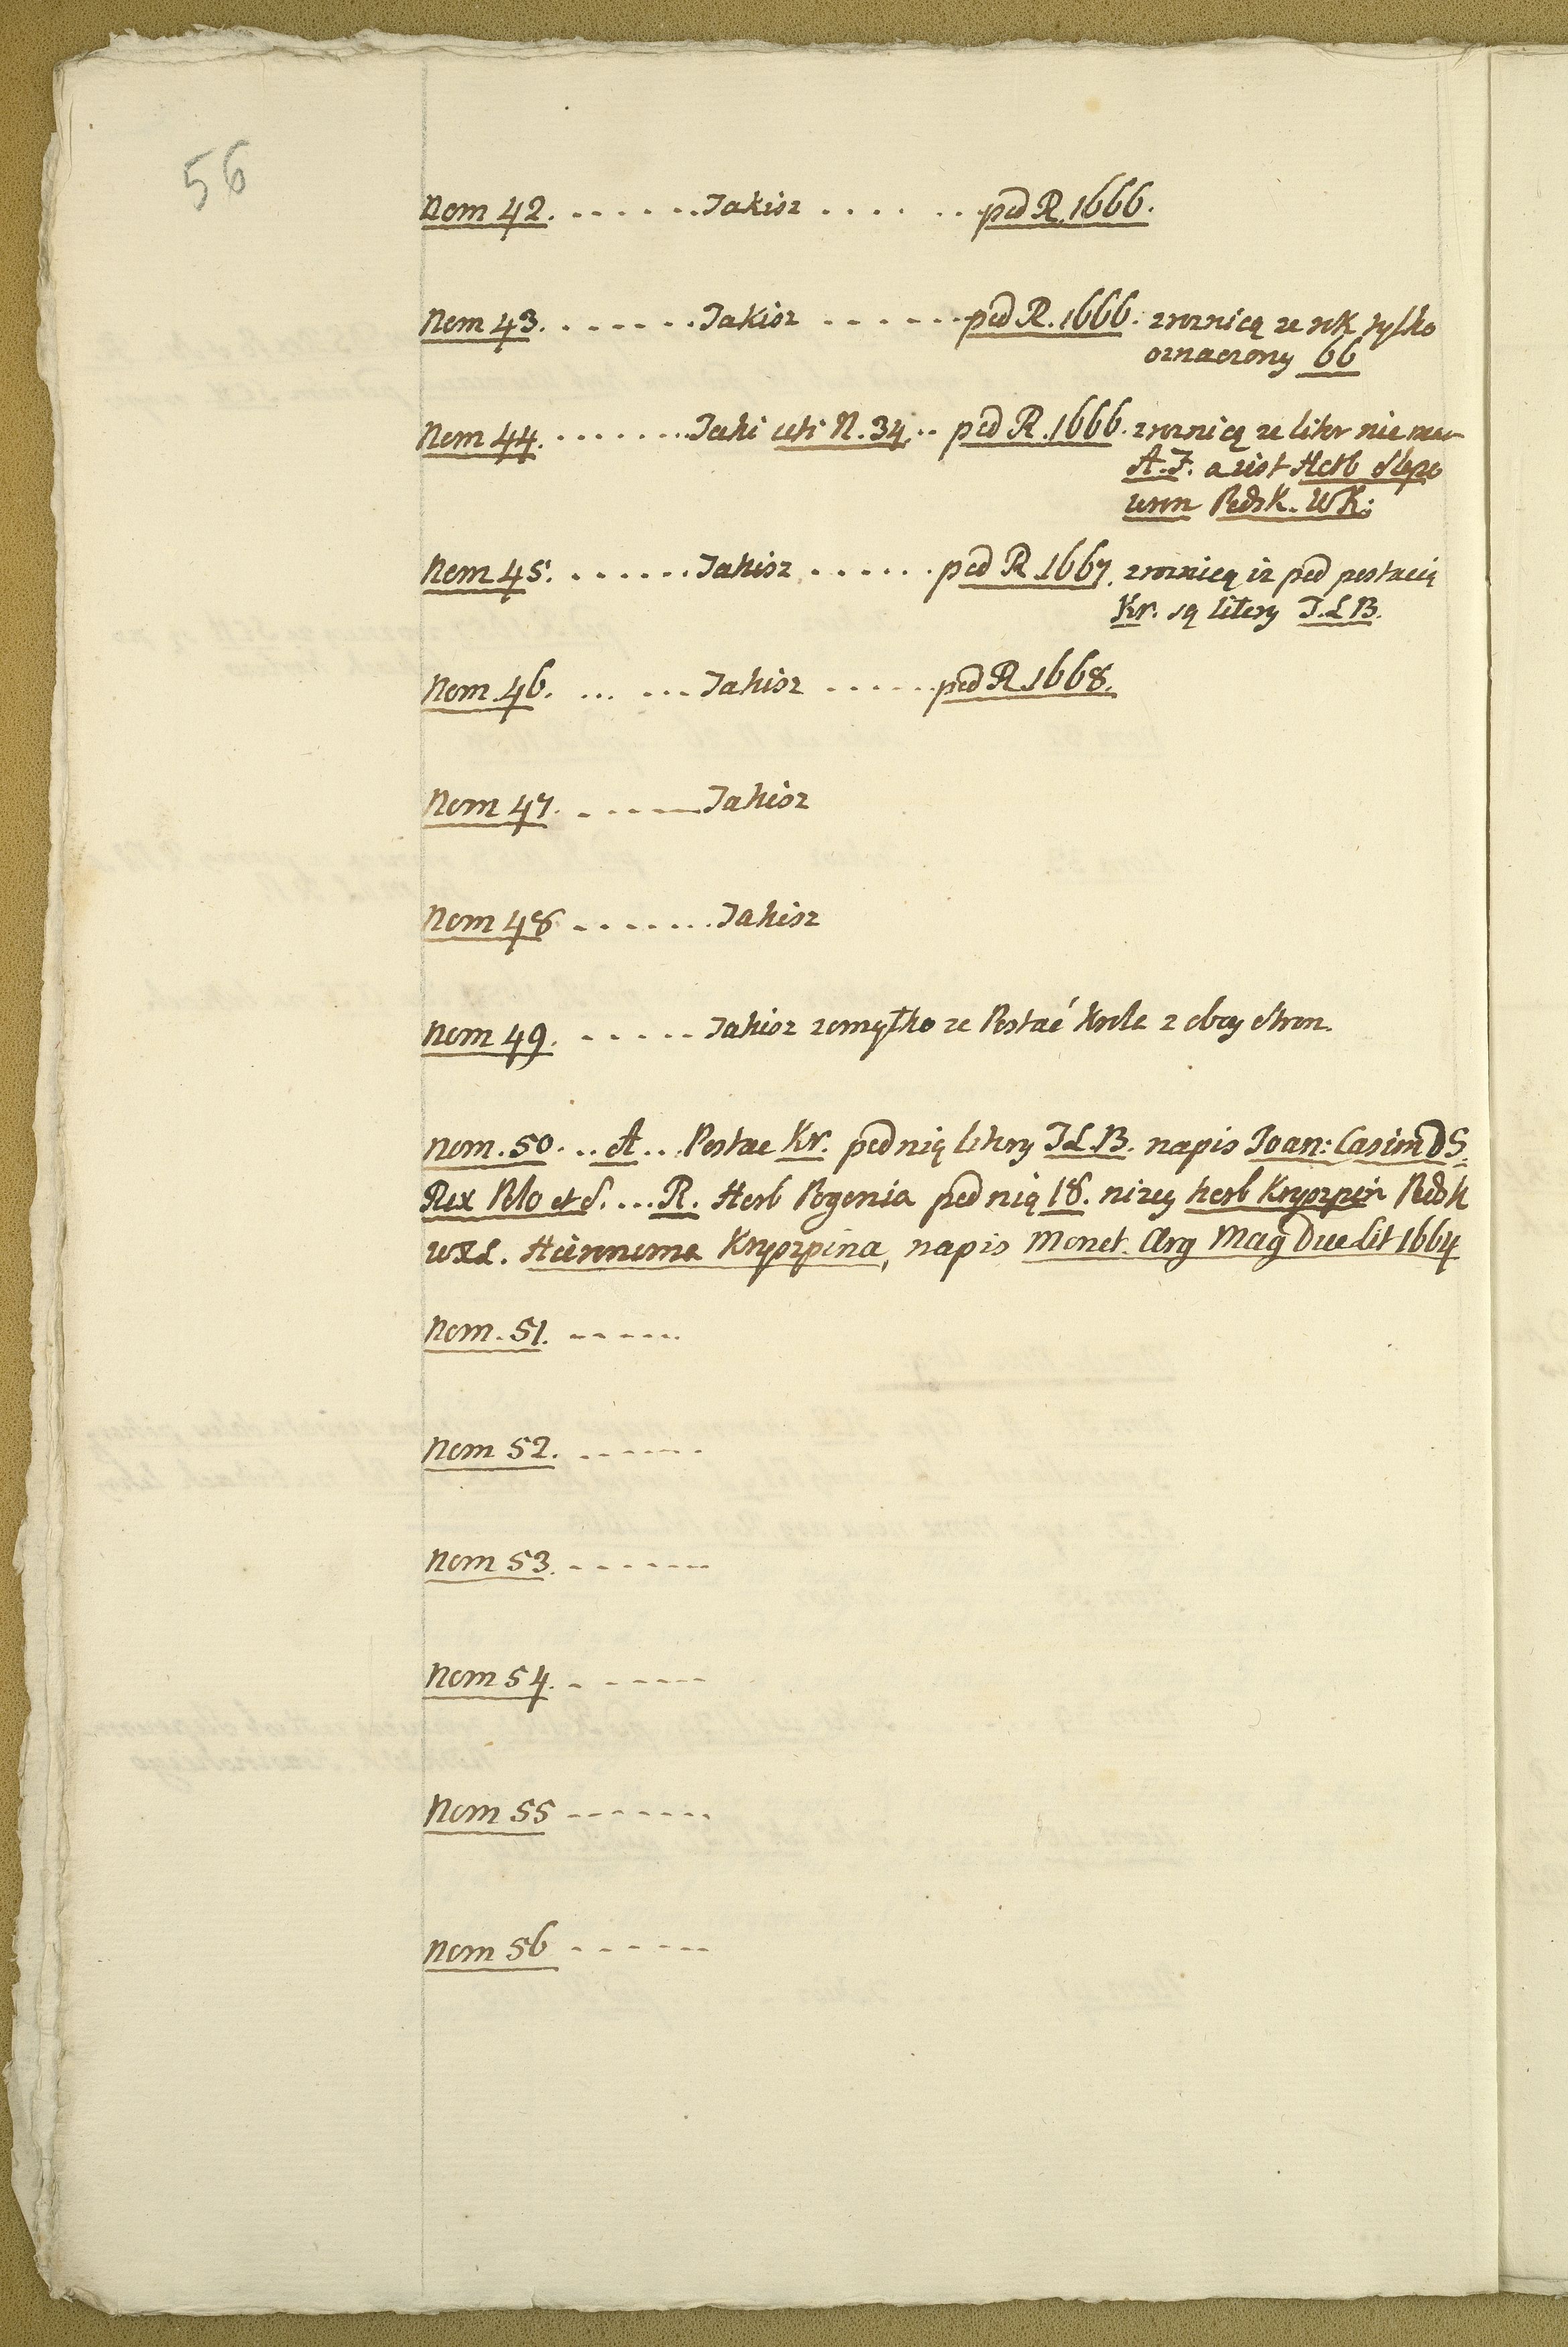 56
Nom 42. . . . . . . Jakisz . . . . . . pod R. 1666.
Nom 43. . . . . . . Jakisz . . . . . . pod R. 1666. zroznicą ze rok tylko
oznaczony 66
Nom 44. . . . . . . Jaki uti N. 34. . . pod R. 1666. zroznicą ze liter nie ma
A.F. a iest Herb Slepo
wron Podsk. WK:
Nom 45. . . . . . . Jakisz . . . . . . pod R. 1667. zroznicą iz pod postacią
Kr. są litery T.L.B.
Nom. 46. ... ... Jakisz . . . . . pod R. 1668.
Nom 47. . . . . . Jakisz
Nom 48 . . . . . . . Jakisz
Nom 49. . . . . . Jakisz zomyłko ze Postać Krola z oboy stron.
Nom. 50. . . A . . . Postac Kr. pod nią litery T.L.B. napis Joan: Casim D G.
Rex Polo et S. ... R. Herb Pogonia pod nią 18. nizey herb Kryszpin Podsk
WXL. Kryszpina, napis Monet. Arg Mag Duc Lit 1664
Nom. 51. - - - - -
Nom 52. - - - - -
Nom 53. - - - - - -
Nom 54. - - - - -
Nom 55 - - - - - - -
Nom 56 - - - - - -